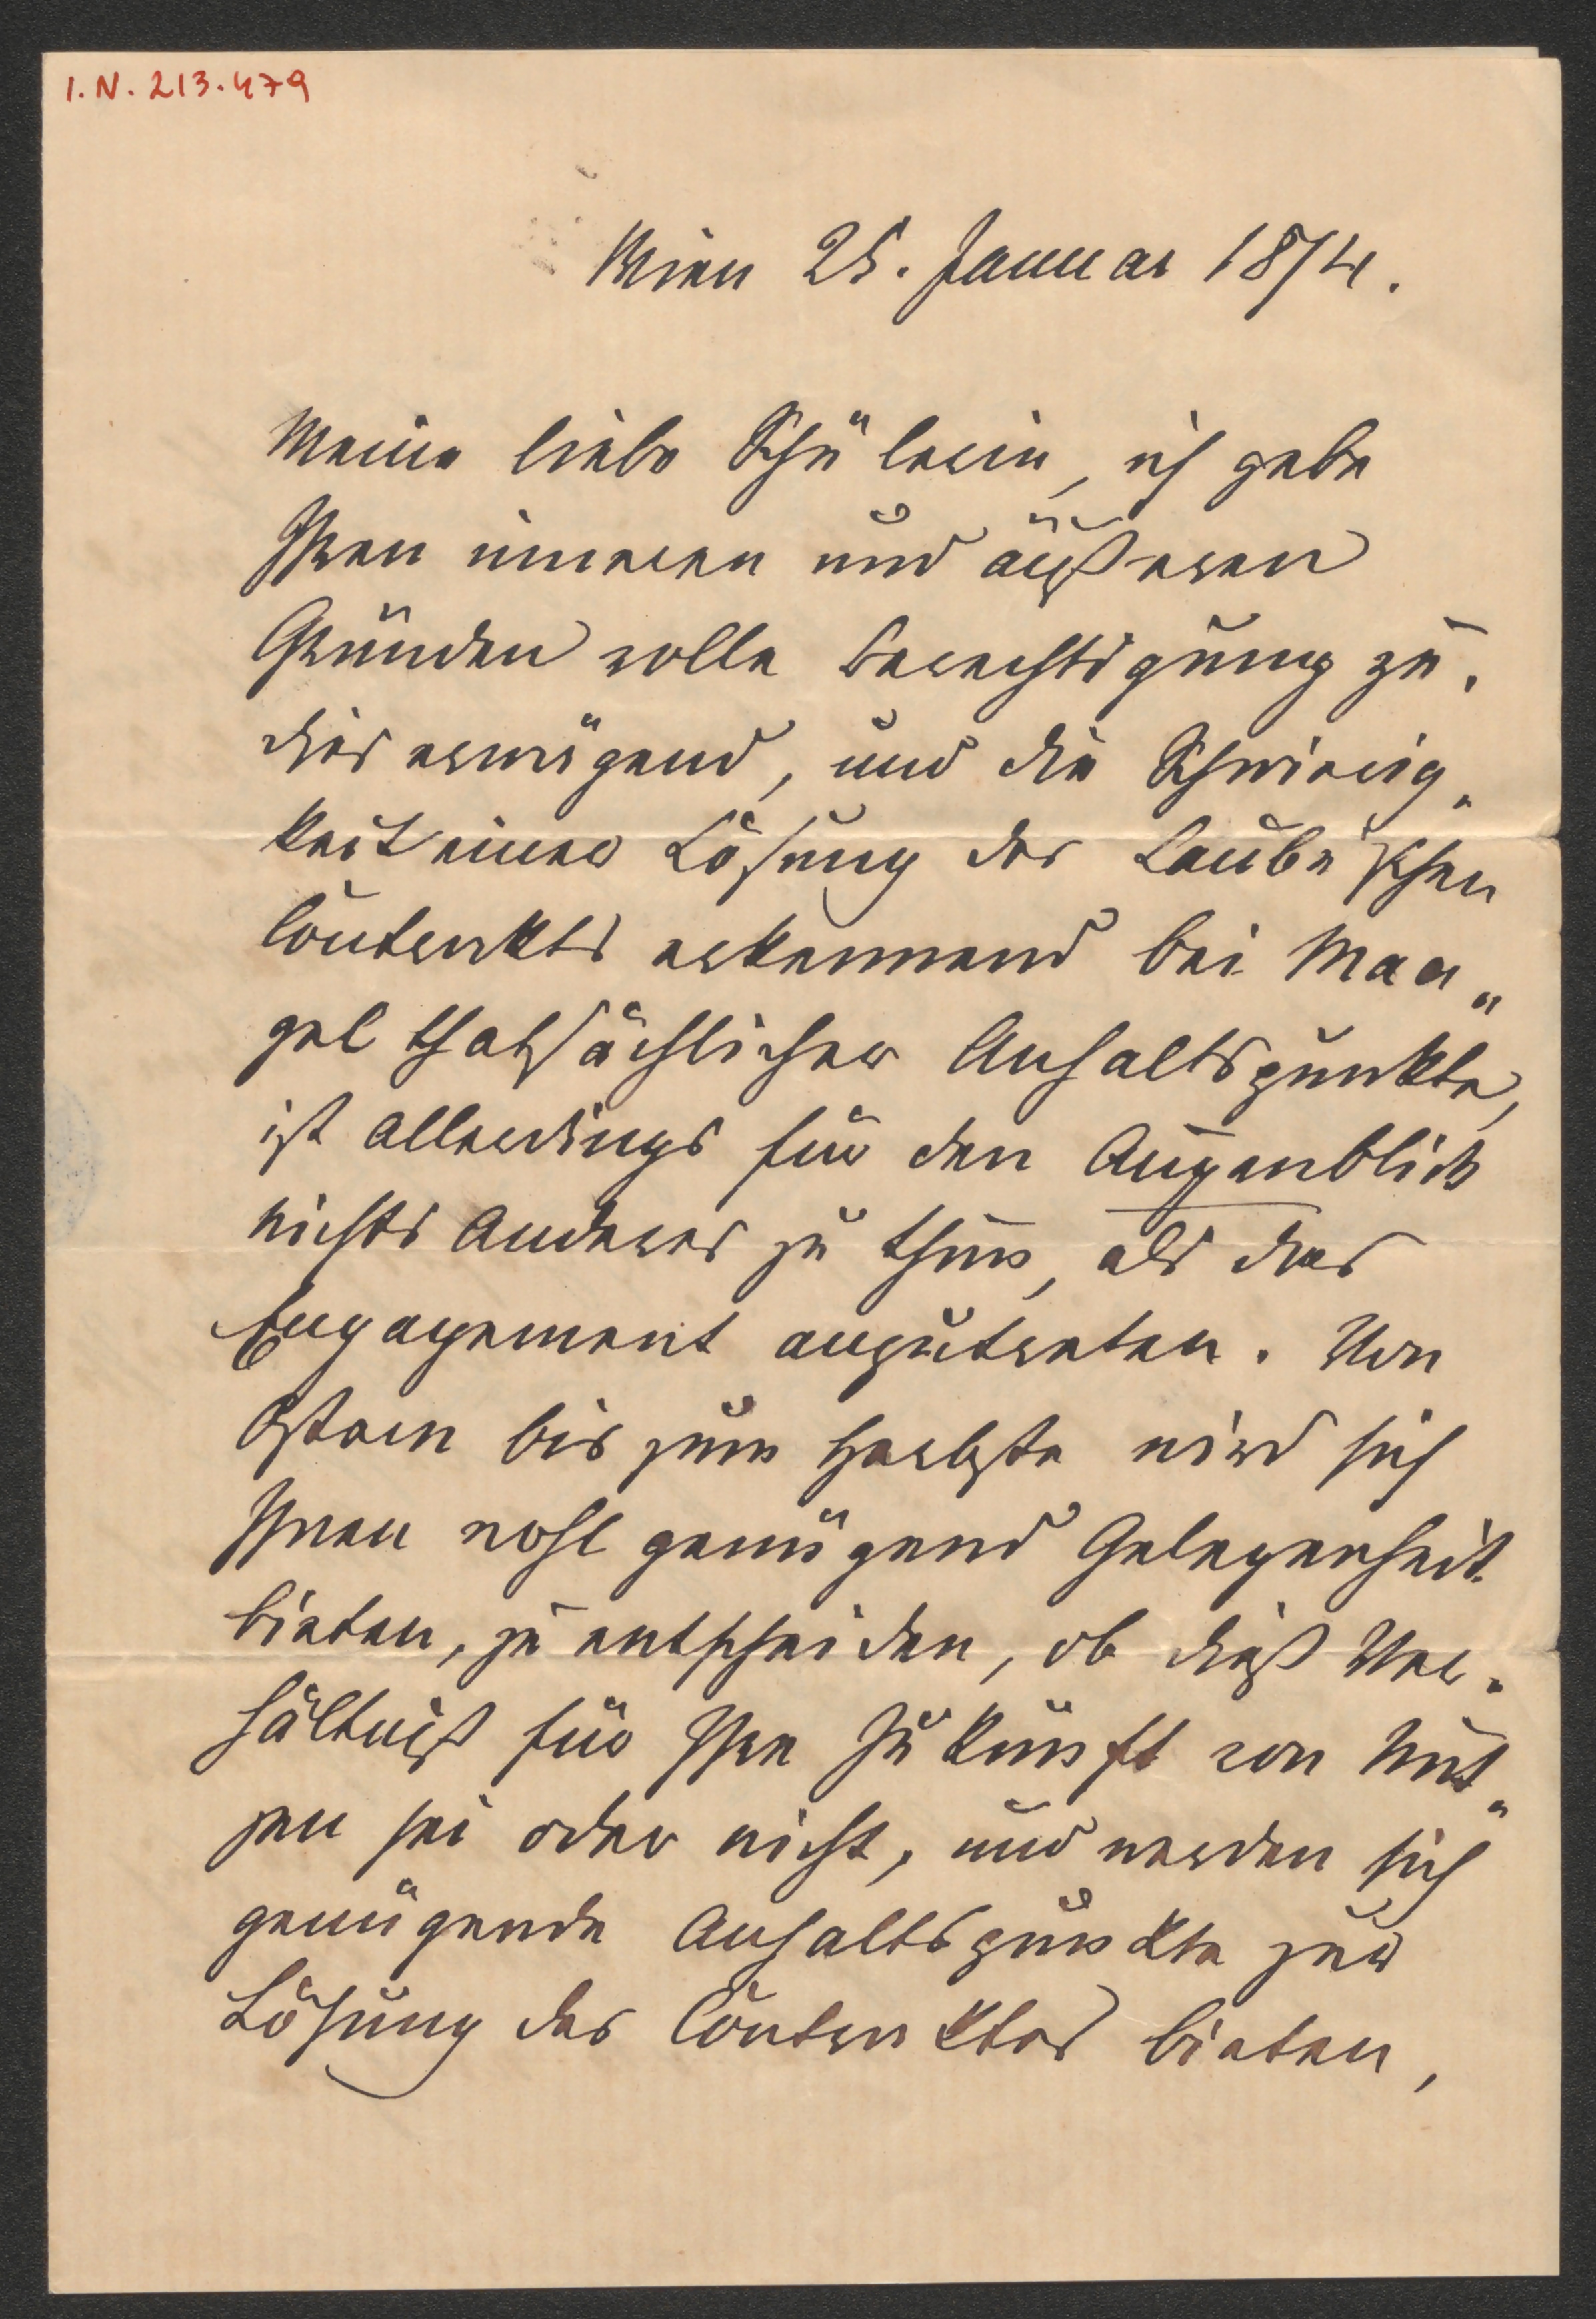 I.N. 213.479
Wien 25. Januar 1874.
Meine liebe Schülerin, ich gebe
Ihren inneren und äußeren
Gründen volle Berechtigung zu.
dies erwägend, und die Schwierig„
keit einer Lösung des Laube'schen
Contrakts erkennend bei Man„
gel thatsächlicher Anhaltspunkte,
ist allerdings für den Augenblick
nichts Anderes zu thun, als das
Engagement anzutreten. Von
Ostern bis zum Herbste wird sich
Ihnen wohl genügend Gelegenheit
bieten, zu entscheiden, ob dieß Ver„
hältniß für Ihre Zukunft von Nut„
zen sei oder nicht, und werden sich
genügende Anhaltspunkte zur
Lösung des Contraktes bieten,